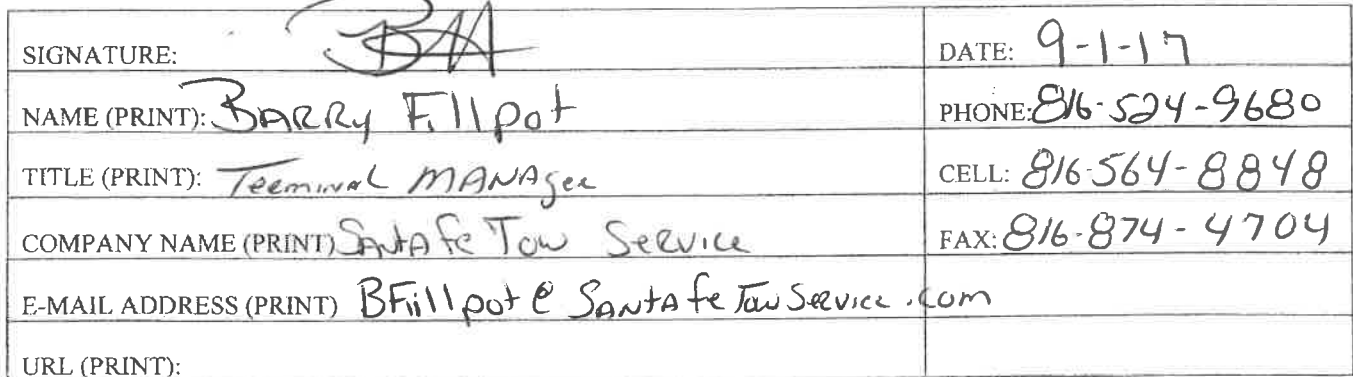 SIGNATURE: DATE: 9-1-17
NAME (PRINT): BARRY Fillpot PHONE: 816-524-9680
TITLE (PRINT): Terminal MANAger CELL: 816-564-8848
COMPANY NAME (PRINT) SANtA Fe Tow Service FAX: 816-874-4704
E-MAIL ADDRESS (PRINT) BFillpot@SANtAfeTowService.com
URL (PRINT):